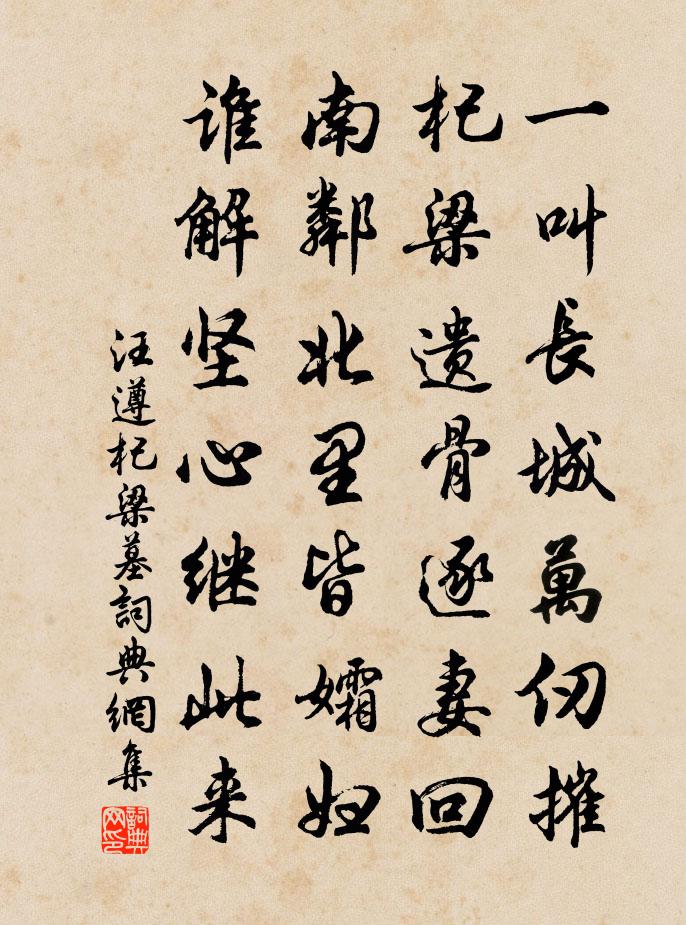 一叫長城萬仞摧
杞梁遺骨逐妻回
南鄰北里皆孀婦
谁解坚心继此来
汪遵杞梁墓詞典網集
詞典网印